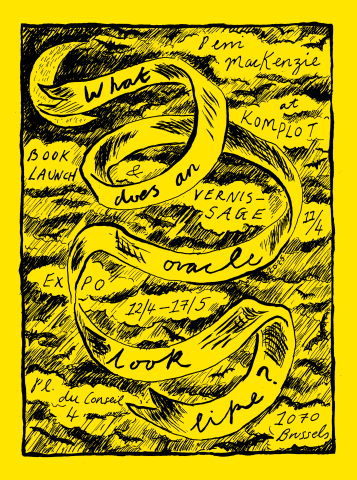 Pem
MacKenzie
What
at
KOMPLOT
BOOK
LAUNCH
&
does an
VERNIS-
SAGE
11/4
oracle
EXPO
12/4-17/5
look
like?
Pl. du Conseil
4
1070
Brussels